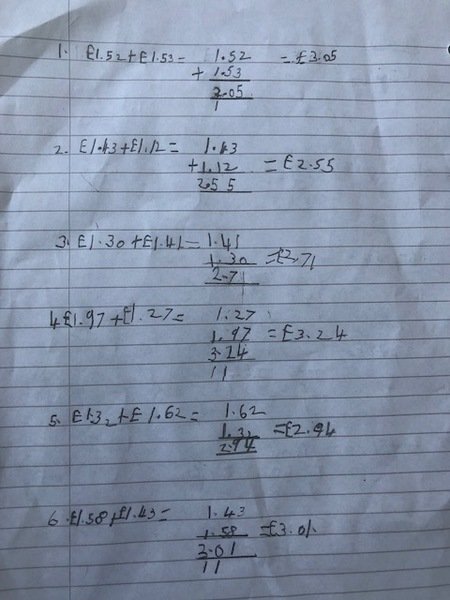 1. £1.52 + £1.53 = 1.52 = £3.05
+ 1.53
3.05
1
2. £1.43 + £1.12 = 1.43
+ 1.12 = £2.55
2.55
3. £1.30 + £1.41 = 1.41
1.30 = £2.71
2.71
4. £1.97 + £1.27 = 1.27
1.97 = £3.24
3.24
11
5. £1.32 + £1.62 = 1.62
1.32 = £2.94
2.94
6. £1.58 + £1.43 = 1.43
1.58 = £3.01
3.01
11